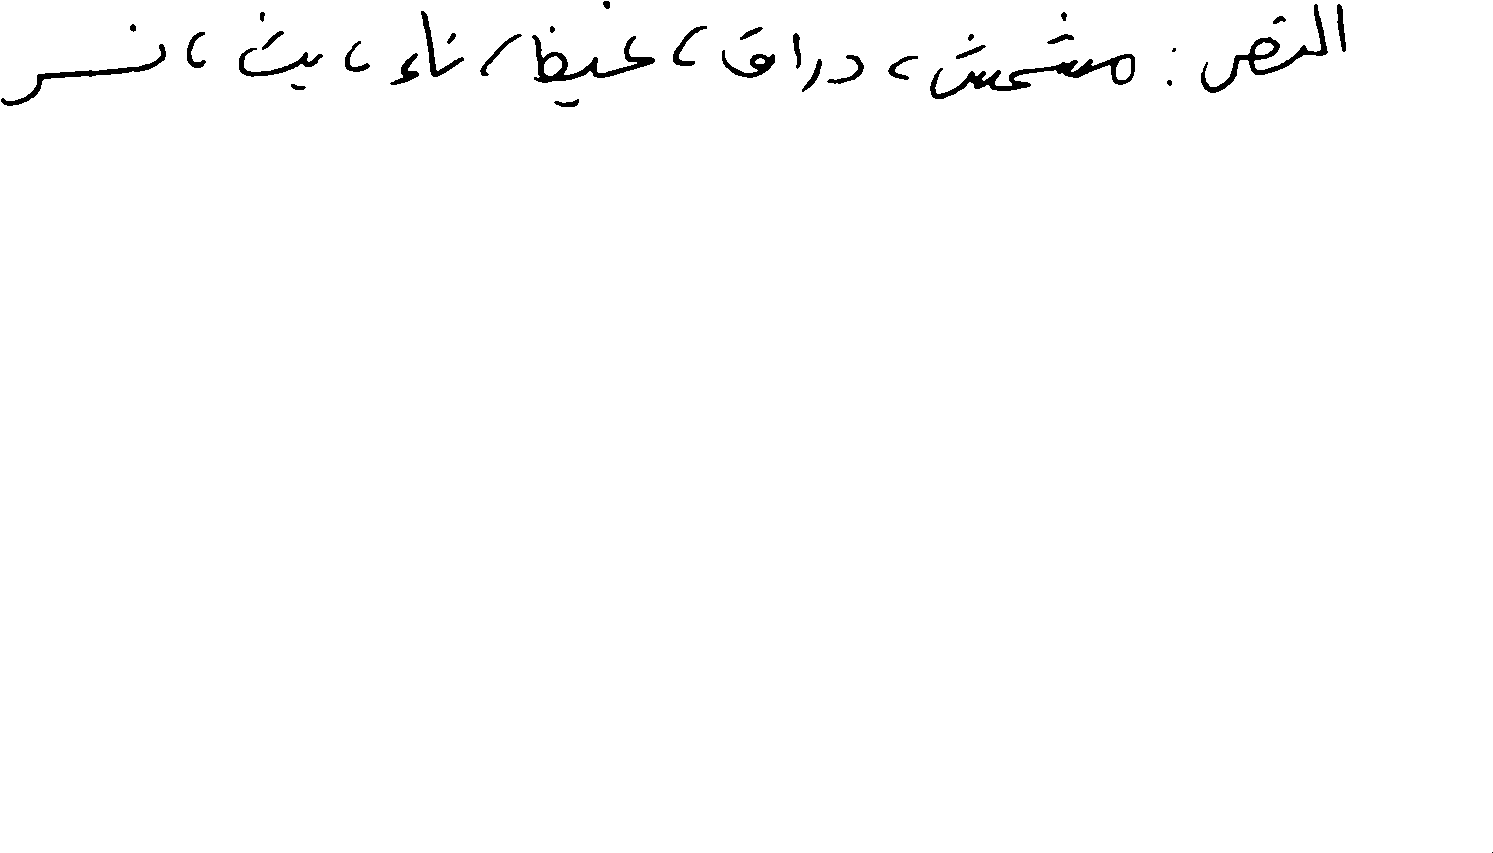 النص: مشمش، دراق، غيظ، ناء، يث، نسر